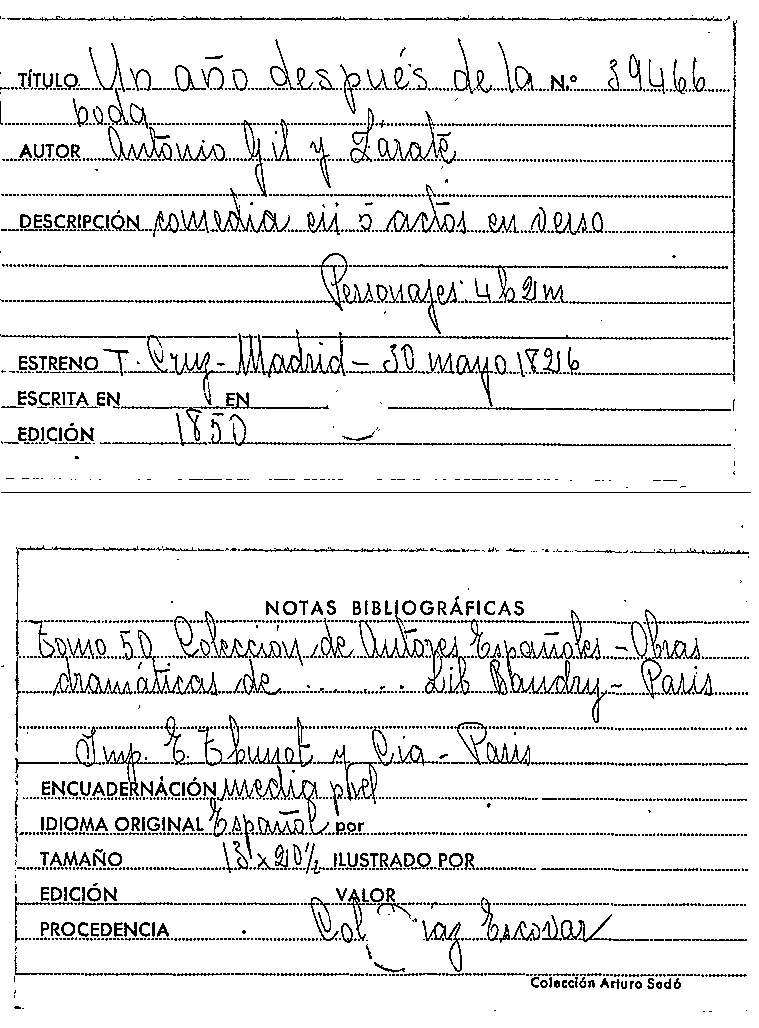 TÍTULO Un año después de la N.º 39466
boda
AUTOR Antonio Gil y Zárate
DESCRIPCIÓN comedia en 5 actos en verso
Personajes: 4h 2m
ESTRENO T. Cruz - Madrid - 30 mayo 1826
ESCRITA EN EN
EDICIÓN 1850
NOTAS BIBLIOGRÁFICAS
Tomo 50 Colección de Autores Españoles - Obras
dramáticas de ....... Lib Baudry - Paris
Imp. E. Thunot y Cia - Paris
ENCUADERNACIÓN media piel
IDIOMA ORIGINAL Español por
TAMAÑO 13 x 20½ ILUSTRADO POR
EDICIÓN VALOR
PROCEDENCIA Col Díaz Escovar
Colección Arturo Sedó